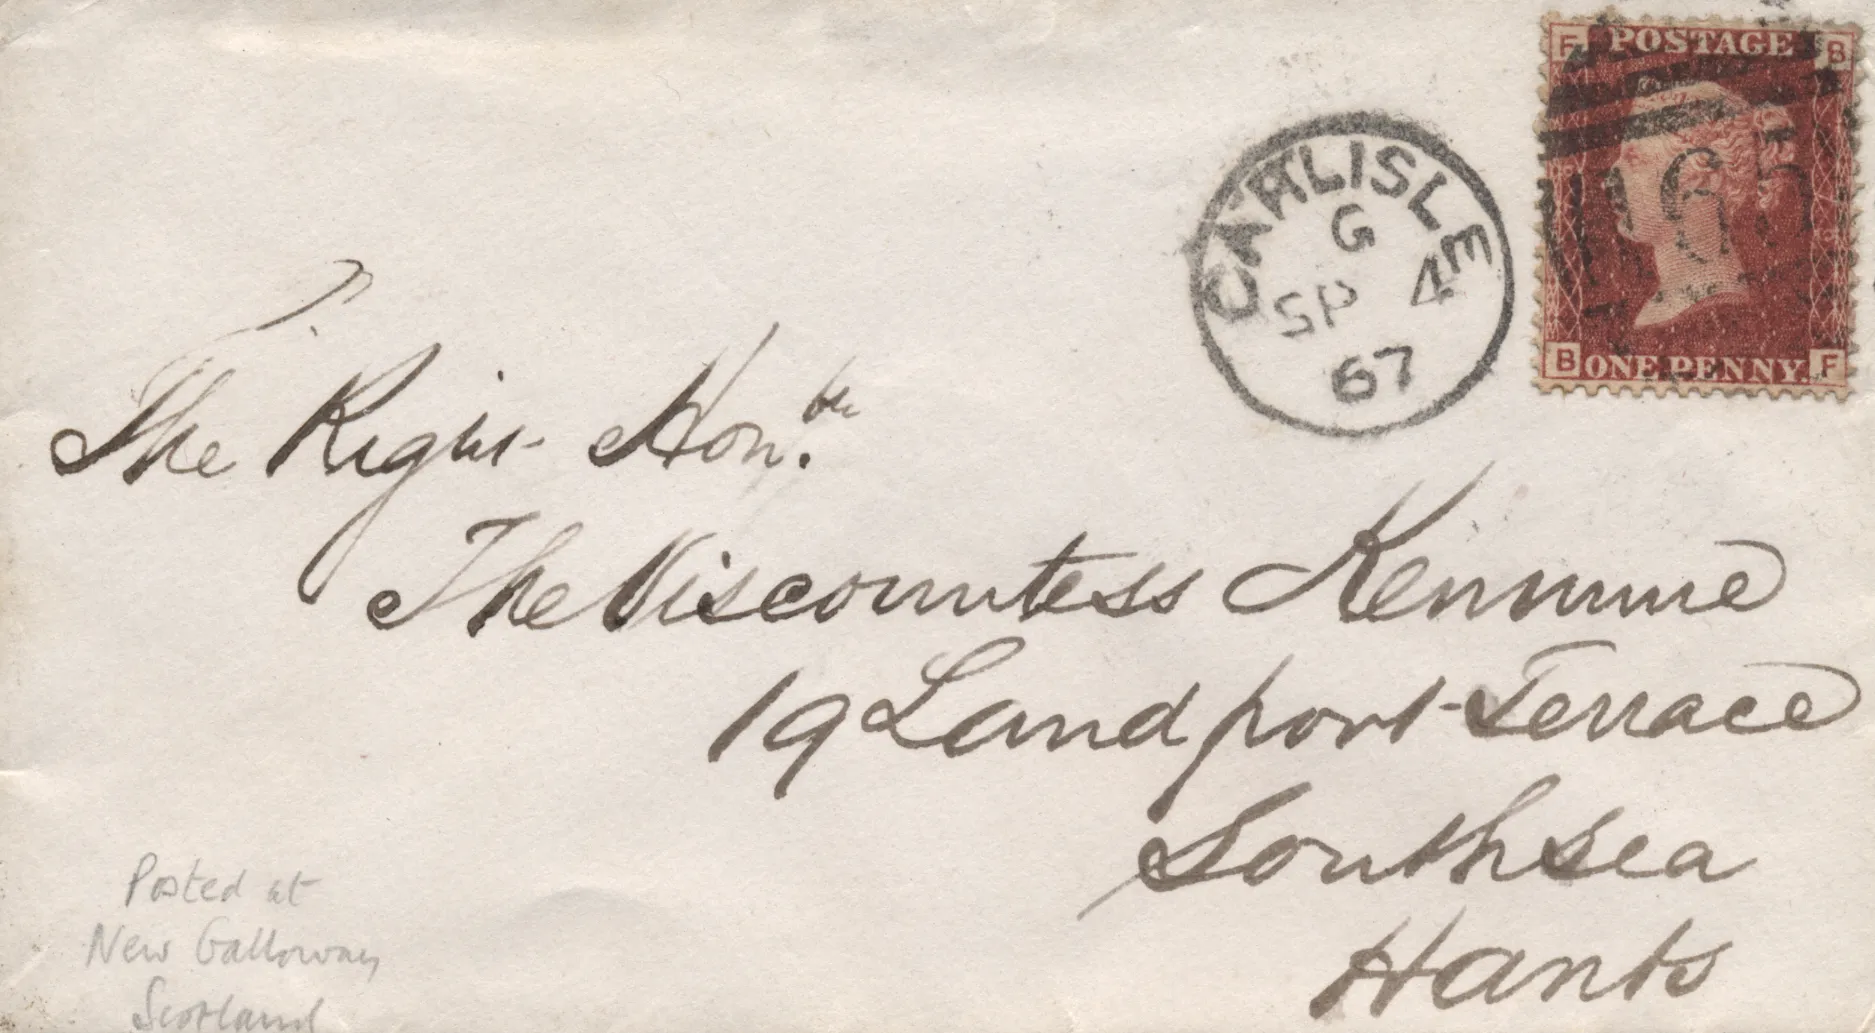 F POSTAGE B
165
B ONE PENNY. F
CARLISLE
G
SP 4
67
The Right Honble
The Viscountess Kenmure
19 Landport Terrace
Southsea
Hants
Posted at
New Galloway
Scotland